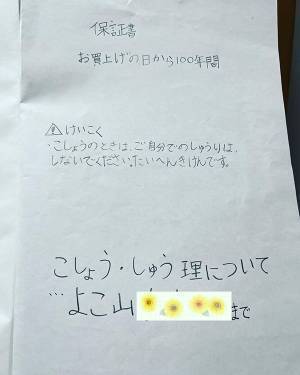 保証書
お買上げの日から100年間
⚠けいこく
・こしょうのときは、ご自分でのしゅうりは、
しないでください。たいへんきけんです。
こしょう・しゅう理について
…よこ山 まで